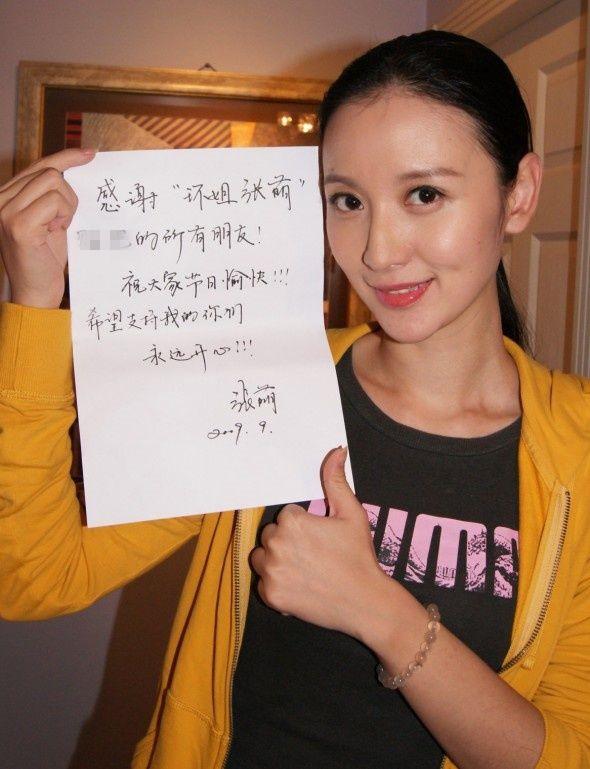 感谢“环姐张萌”
的所有朋友!
祝大家节日愉快!!!
希望支持我的你们
永远开心!!!
张萌
2009.9.
PUMA